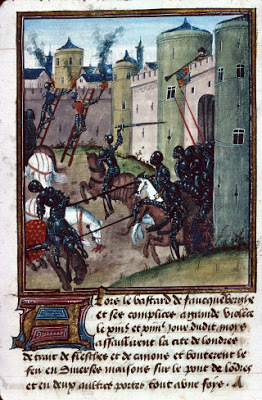 Lors le bastard de faucquberghe
et ses complices a grande violẽce
le xiiije et xvme jour dudit moys
assaulirent la cite de londres
de trait de flesches et de canons et bouterent le
feu en diverses maisons sur le pont de lõdres
et en deux aultres portes tout a une foys. A